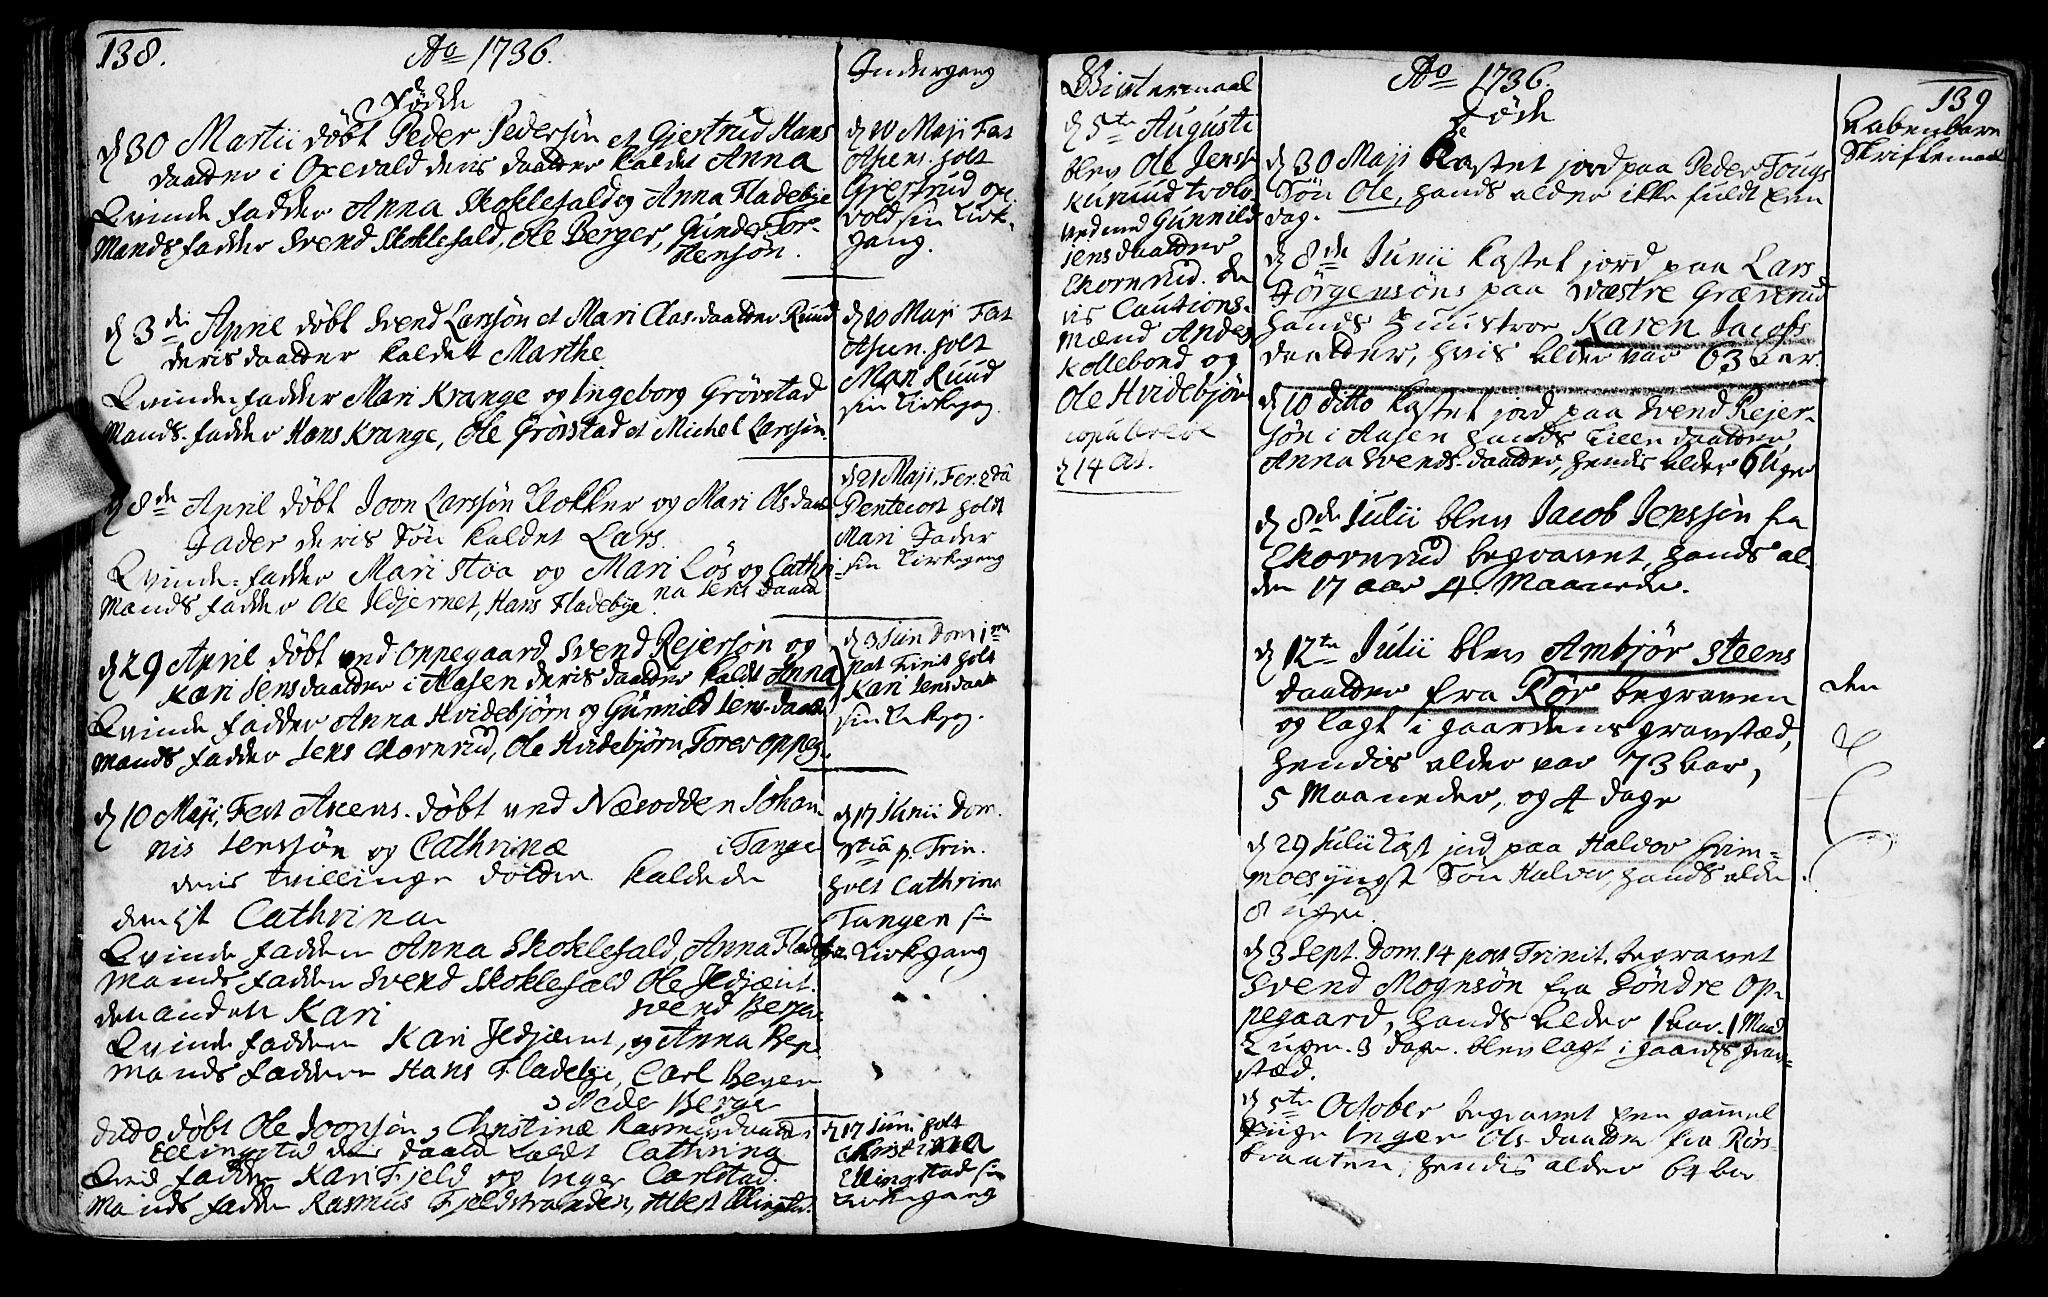 138.
Ao 1736.
Fødde
d 30 Martii døbt Peder Pedersøn et Gjertrud Hans
daatter i Oxevald dens daatter kaldet Anna
Qvinde fadder Anna Skoklefald og Anna Fladebye
Mands fadder Svend Skoklefald, Ole Berger, Gunder Tor-
stensøn.
d 3die April døbt Svend Larssøn et Mari Clas-daatter Ruud
deris daatter kaldet Marthe
Qvinde fadder Mari Krange og Ingeborg Grøvstad
Mands-fadder Hans Krange, Ole Grøvstad et Michel Larssøn.
d 8de April døbt Joon Larssøn Klokker og Mari Ols daat
Jader deris Søn kaldet Lars.
Qvinde-fadder Mari Støa og Mari Løs og Cathri
na Jens daatd
Mands fadder Ole Ildjernet, Hans Fladebye.
d 29 April døbt ved Oppegaard Svend Rejersøn og
Kari Jensdaatter i Aasen deris daatter kaldt Anna
Qvinde fadder Anna Hvidebjørn og Gunnild Jens-daatter
Mands fadder Jens Ekornrud, Ole Hvidebjørn, Torer Oppeg.
d 10 Maji, Fest Ascens. døbt ved Næsodden Johan
nis Jenssøn og Cathrinæ i Tange
deris tvillinge døttre kaldede
den 1st Cathrina
Qvinde fadder Anna Skoklefald, Anna Fladebye
Mands fadder Svend Skoklefald Ole Ildjernt.
Svend Berger
den anden Kari
Qvinde fadder Kari Ildjernet, og Anna Berge
Mands faddere Hans Fladebye, Carl Berger
o Peder Berger
dito døbt Ole Joonsøn, Christinæ Rasmusdaatter
Ellingstad deris daatd kaldt Cathrina
Qvid fadder Kari Fjeld og Inger Carlstad.
Mands fadde Rasmus Fjeldstranden, Albest Ellingstd.
Indergang
d 10 Maji Fest
Ascens. holt
Gjertrud oxe
vold sin Kirk-
gang.
d 10 Maji Fest
Ascen. holt
Mari Ruud
sin Kirkegg.
d 21 Maji, Fer. 2da
Pentecost holdt
Mari Jader
sin Kirkegang
d 3 Jun Dom 1ma
post Trinit holt
Kari Jensdaat
sin Kirkegg.
d 17 Junii Dom.
3tia p. Trin.
holt Cathrina
Tangen sin
Kirkegang
d 17 Junii holt
Christina
Ellingstad sin
Kirkegang
Wintermaal
d 5te Augusti
blev Ole Jenss.
Kuruud trolo-
ved med Gunnild
Jensdaatter
Ekornrud. de
ris Cautions-
mænd Anders
Kollebond og
Ole Hvidebjørn
copulerede
d 14 Oct.
139
Ao 1736.
Døde
d 30 Maji kastet jord paa Peder Tougs
Søn Ole, hands alder ikke fuldt een
dag.
d 8de Junii kastet jord paa Lars
Jörgensöns paa Wæstre Græverud
hands Huustroe Karen Jacobs
daatter, hvis alder var 63 aar.
d 10 ditto kastet jord paa Svend Rejer-
søn i Aasen hands lille daatter
Anna Svends-daatter, hendis alder 6 Uger
d 8de Julii blev Jacob Jenssøn fra
Ekornrud begravet, hands al-
der 17 aar 4 Maaneder.
d 12te Julii blev Ambjør Steens
daatter fra Rör begraven
og lagt i gaardens gravstæd,
hendis alder var 73 aar,
5 Maaneder, og 4 dage
d 29 Julii Kast jord paa Halvor
moes yngst Søn Halvor, hands alder
8 uger.
d 3 Sept. Dom. 14 post Trinit. begravet
Svend Mognsøn fra Söndre Op-
pegaard, hands alder 1 aar. 1 Maad
2 uger. 3 dage. blev lagt i gaards grav-
stæd.
d 5te October begravet een gammel
pige Inger Ols-daatter fra Rörs-
braaten, hendis alder 64 aar
Aabenbare
Skriftemaal
den